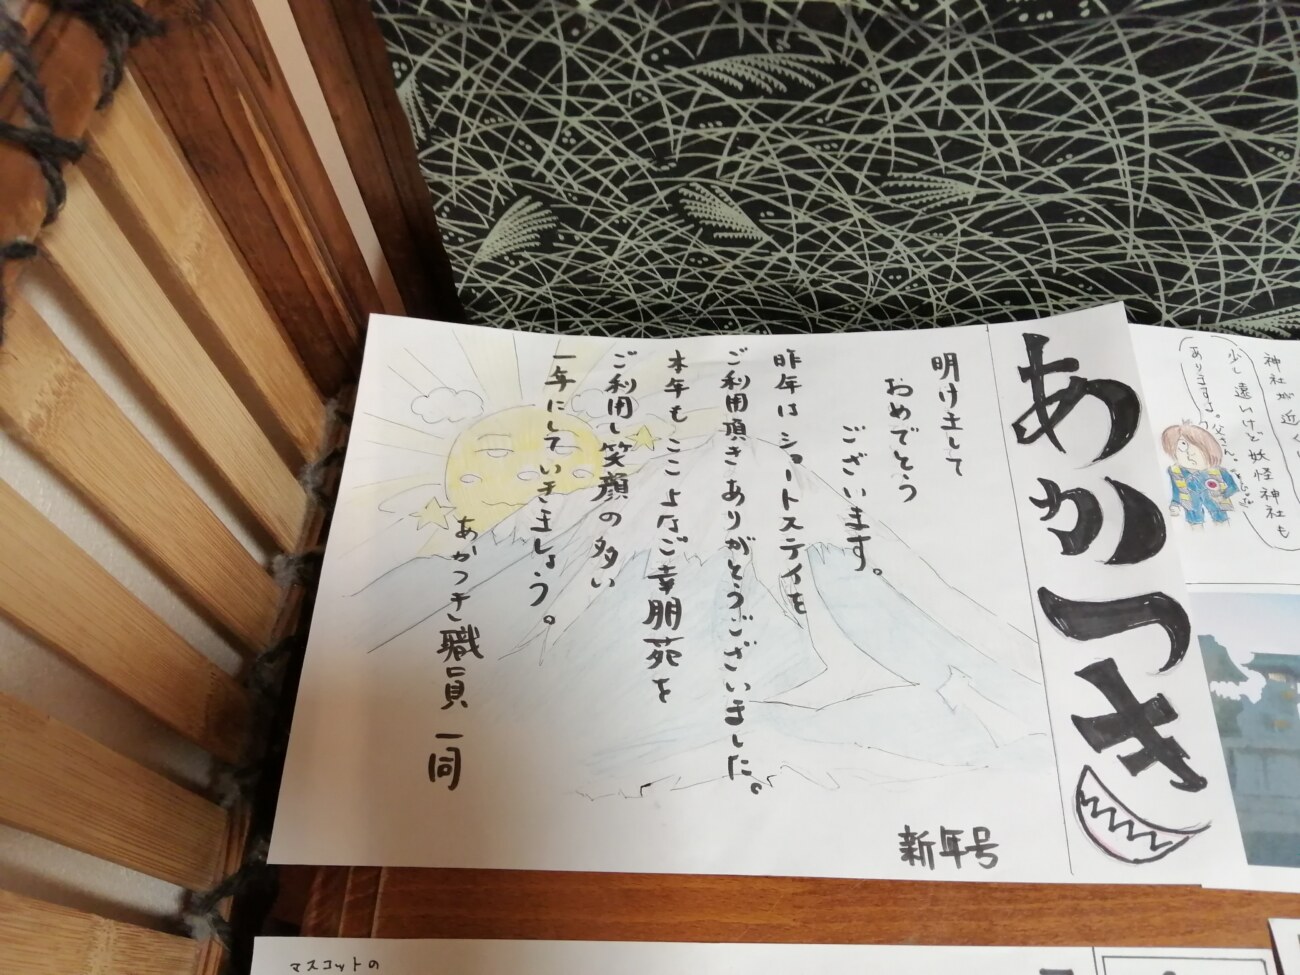 あかつき
新年号
明けまして
おめでとう
ございます。
昨年はショートステイを
ご利用頂きありがとうございました。
本年もここよなご幸朋苑を
ご利用し笑顔の多い
一年にしていきましょう。
あかつき職員一同
神社が近く
少し遠いけど妖怪神社も
ありますよ。父さん
マスコットの